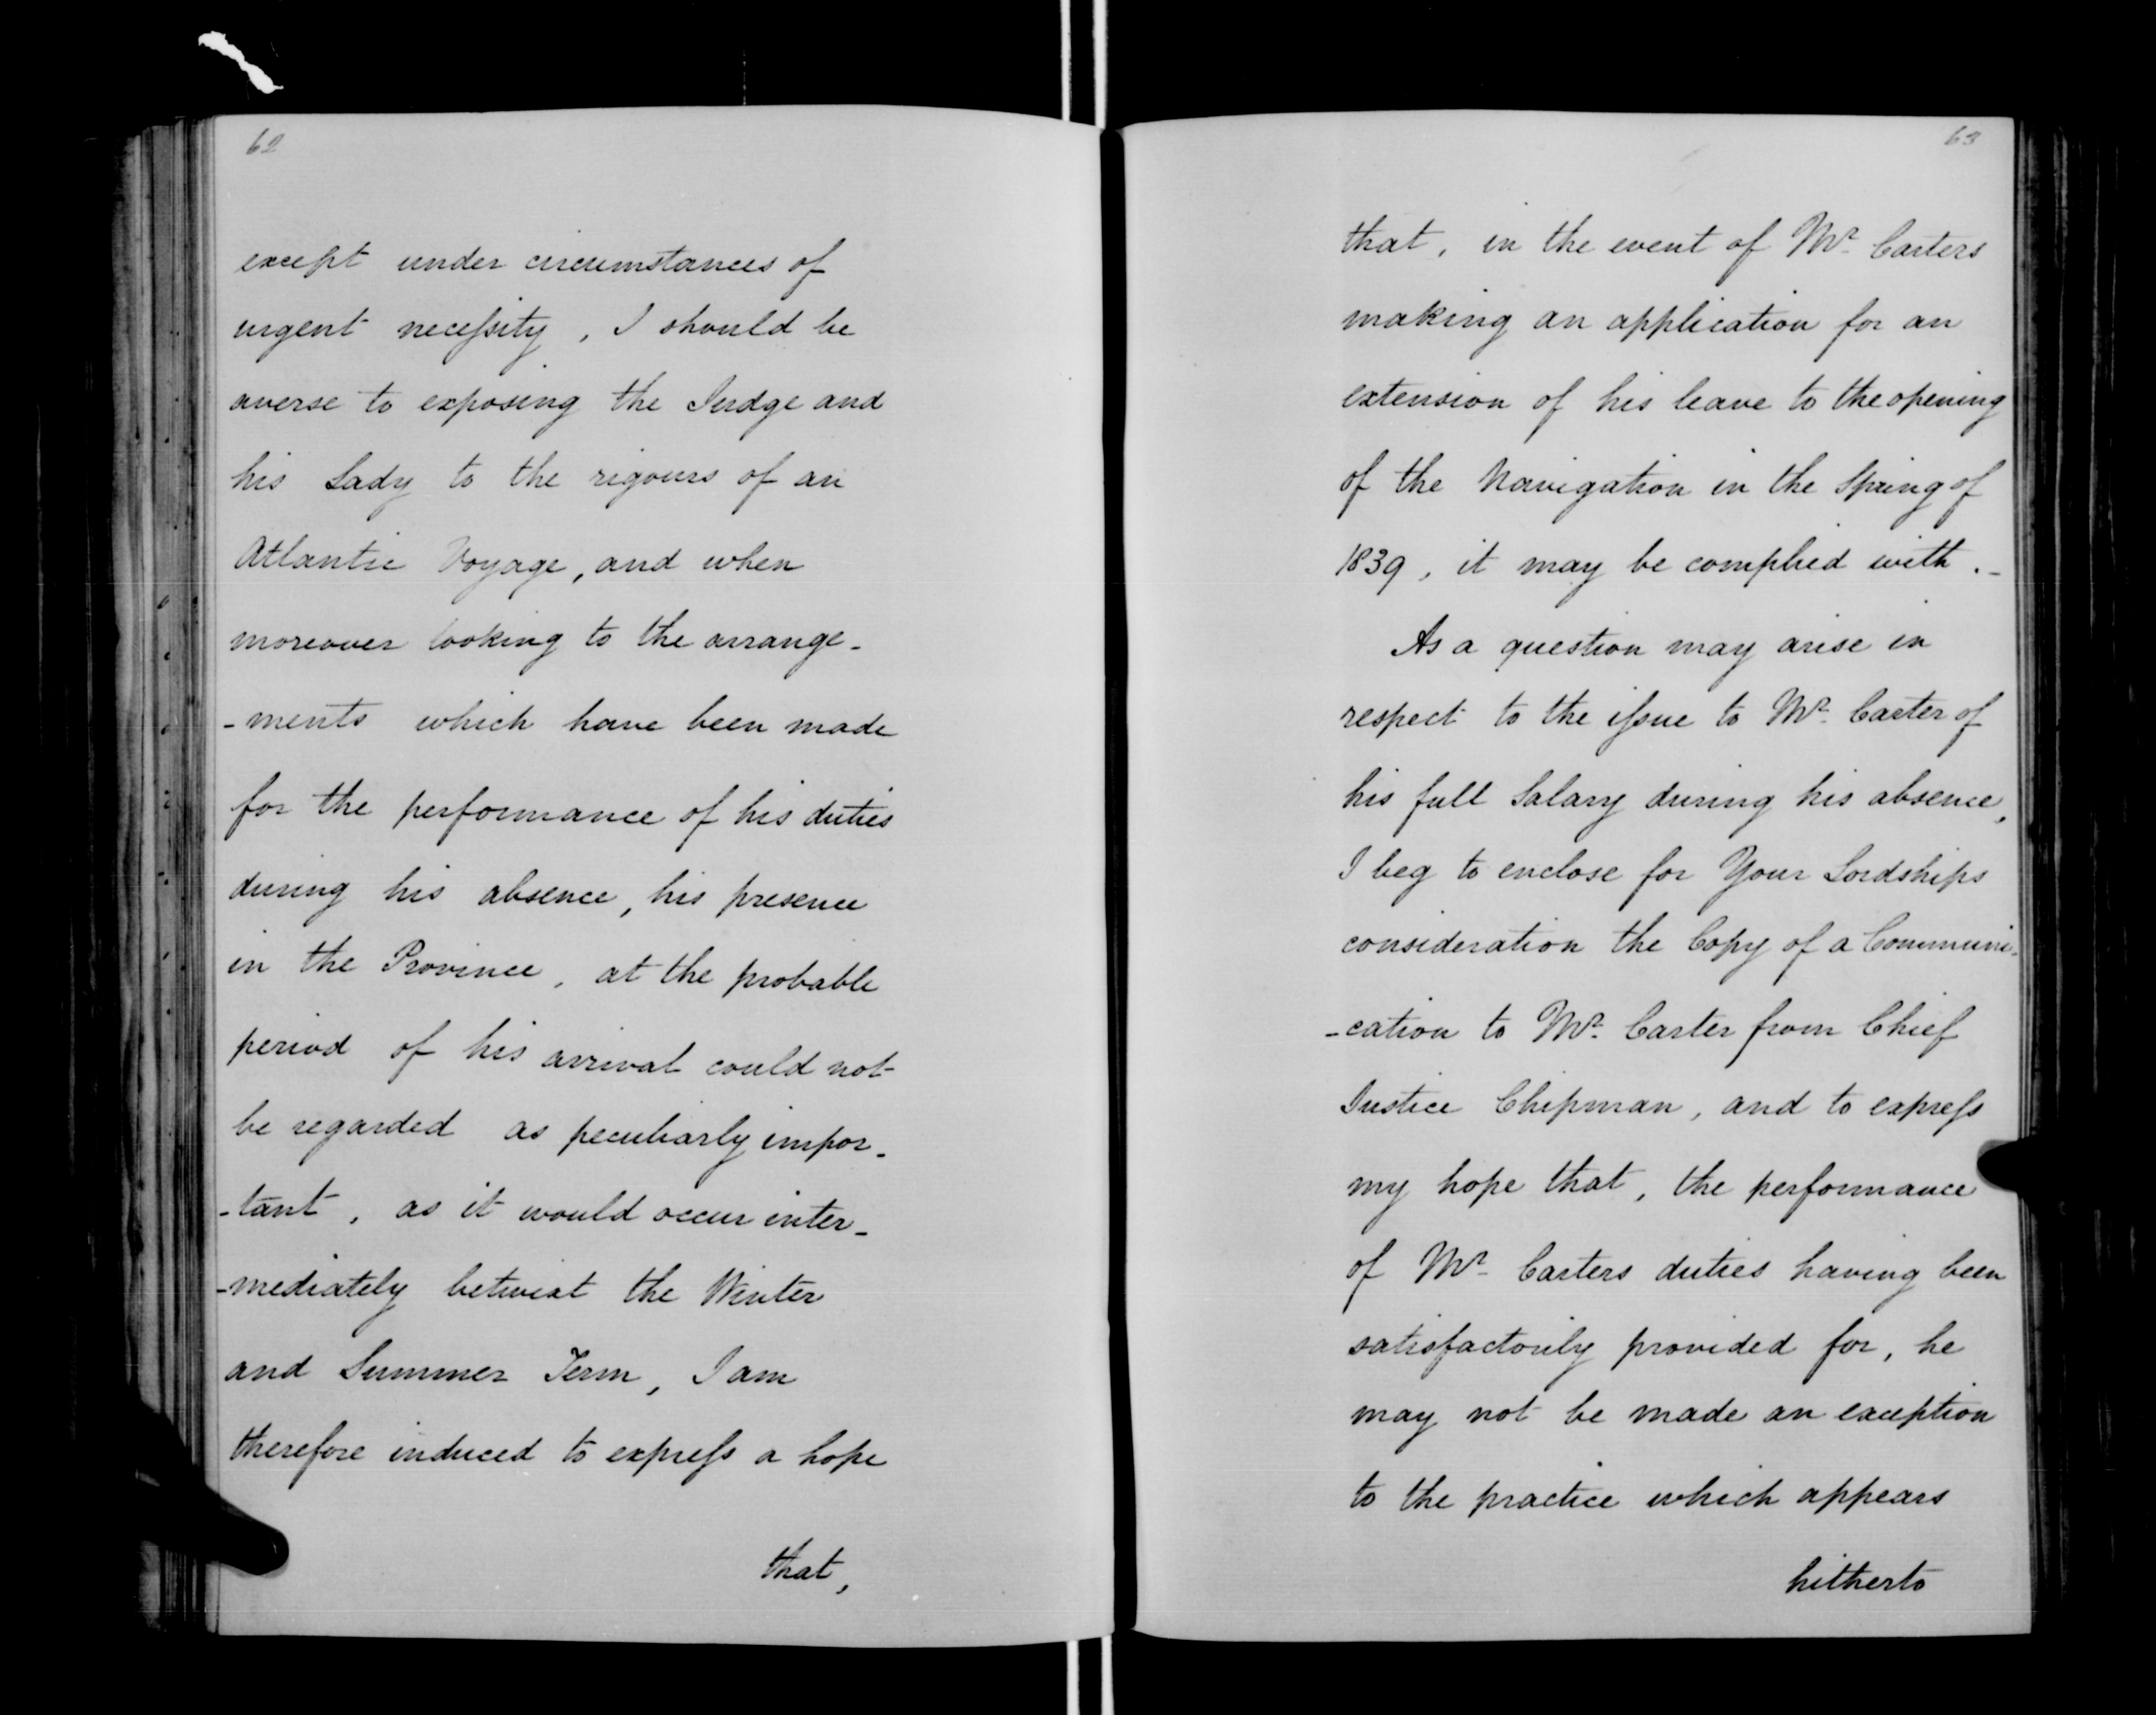 62
except under circumstances of
urgent necessity, I should be
averse to exposing the Judge and
his Lady to the rigours of an
Atlantic Voyage, and when
moreover looking to the arrange-
-ments which have been made
for the performance of his duties
during his absence, his presence
in the Province, at the probable
period of his arrival could not
be regarded as peculiarly impor-
-tant, as it would occur inter-
-mediately betwixt the Winter
and Summer Term, I am
therefore induced to express a hope
that,
63
that, in the event of Mr. Carters
making an application for an
extension of his leave to the opening
of the Navigation in the Spring of
1839, it may be complied with.-
As a question may arise in
respect to the issue to Mr. Carter of
his full Salary during his absence,
I beg to enclose for Your Lordships
consideration the Copy of a Communi-
-cation to Mr. Carter from Chief
Justice Chipman, and to express
my hope that, the performance
of Mr. Carters duties having been
satisfactorily provided for, he
may not be made an exception
to the practice which appears
hitherto